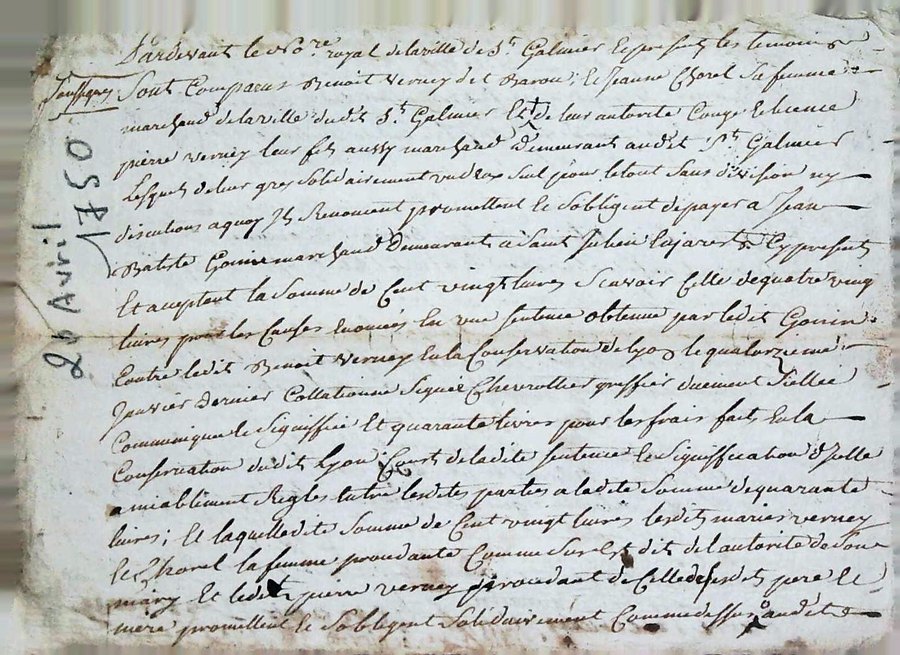 Pardevant le No.re royal de la ville de St. Galmier et presents les temoins
soussignes
Sont Comparus Benoit Verney dit Barou, et Jeanne Chorel sa femme
marchand de la ville dudit St. Galmier Et de leur autorité Congé et licence
pierre Verney leur fils aussy marchand Demeurant audit St. Galmier
Lesquels de leur grez solidairement un deux seul pour le tout sans division ny
discutions a quoy Ils Renoncent promettent et s'obligent de payer a Jean
Batiste Gonin marchand Demeurant a Saint Julien En Jarest Cy present
Et aceptent la somme de Cent vingt livres Scavoir Celle de quatre ving
livres pour les Causes enoncées En une sentence obtenue par ledit Gonin
Contre ledit Benoit Verney En la Conservation de Lyon le quatorzieme
Janvier Dernier Collationné Signé Chevrollier greffier duement Sellée
Communiquee et Signiffiée Et quarante livres pour les frais faits En la
Conservation dudit Lyon Court de ladite sentence et Signiffication d'icelle
amiablement Reglés entre lesdites parties a ladite Somme de quarante
livres; Et laquelle dite Somme de Cent vingt livres lesdits mariés verney
et Chorel la femme procedante Comme Sus Est dit de l'autorité de son
mary Et ledit pierre verney procedant de Celle desdits pere Et
mere promettent et s'obligent Solidairement Comme dessus audit
20 Avril 1750